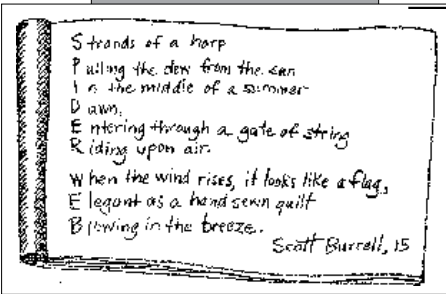 Strands of a harp
Pulling the dew from the sun
In the middle of a summer
Dawn,
Entering through a gate of string
Riding upon air.
When the wind rises, it looks like a flag,
Elegant as a hand sewn quilt
Blowing in the breeze.
Scott Burrell, 15